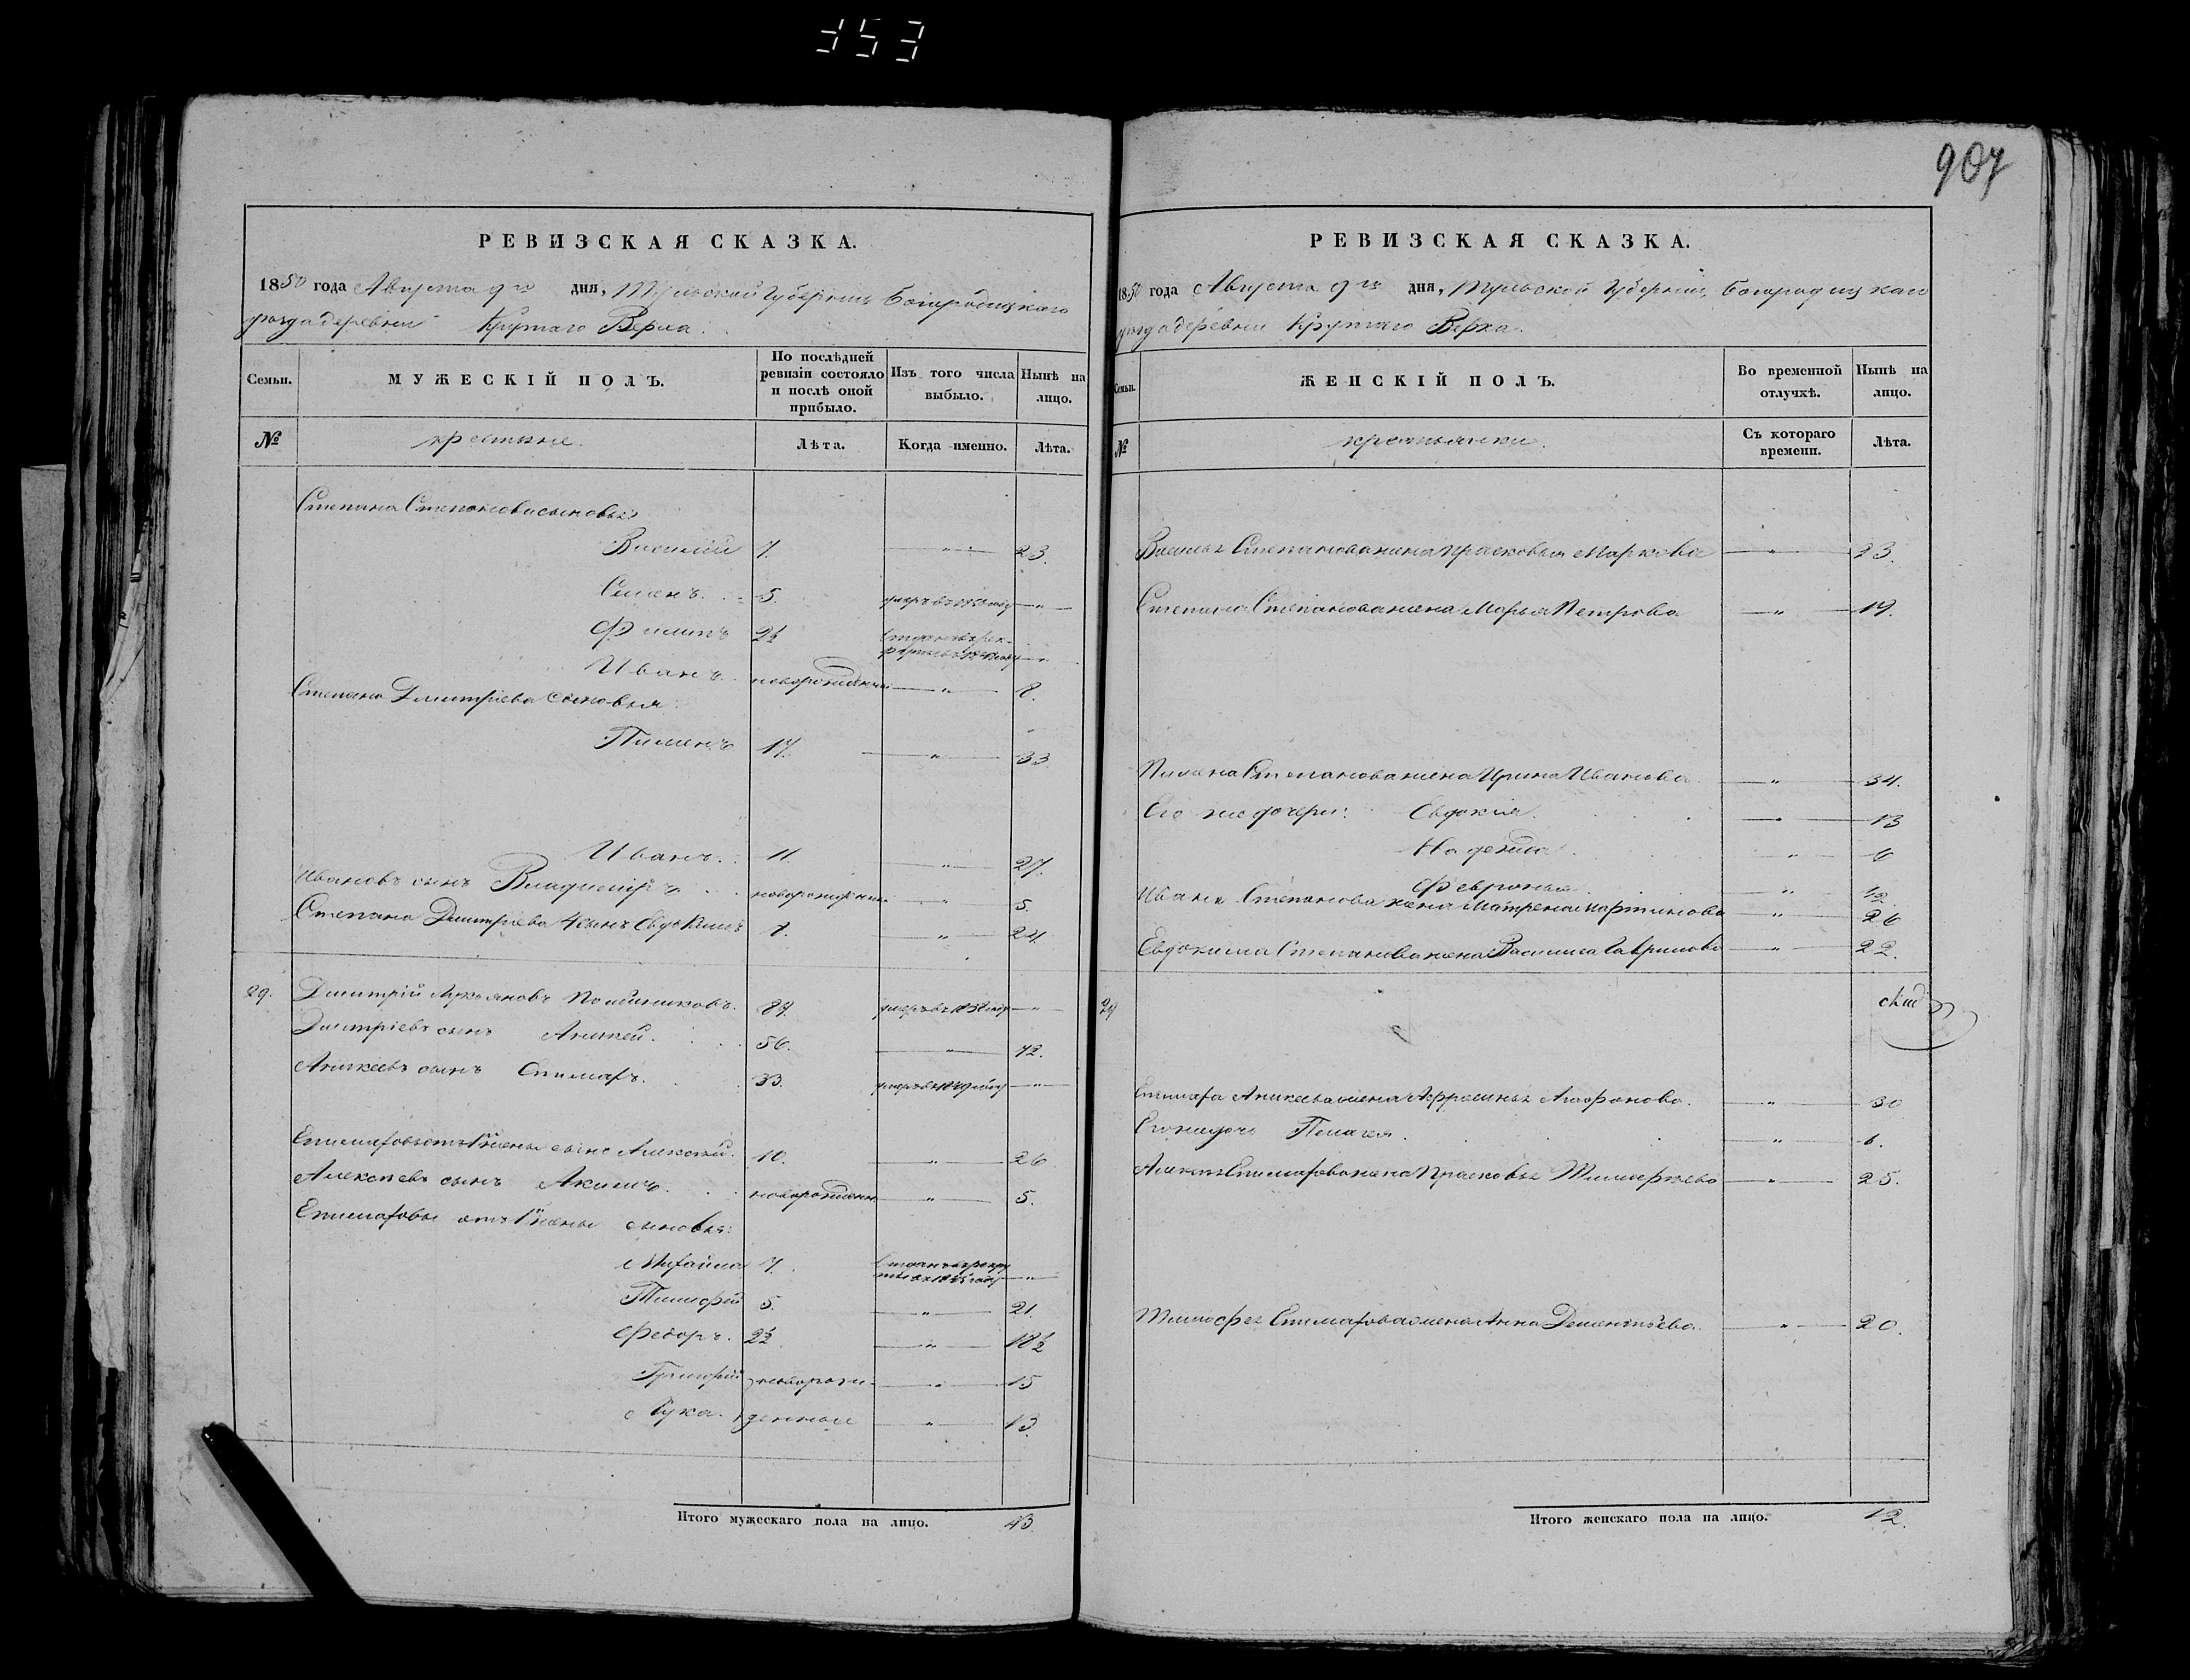 353
907
РЕВИЗСКАЯ СКАЗКА.
1850 года Августа 9го дня, Тульской Губерніи Богородицкаго
уезда деревни Крутаго Верха.
Семьи.
МУЖЕСКІЙ ПОЛЪ.
По послѣдней ревизіи состояло и послѣ оной прибыло.
Изъ того числа выбыло.
Нынѣ на лицо.
№
крестьяне.
Лѣта.
Когда именно.
Лѣта.
Степана Степанова сыновья
Василій 7. " 23.
Семенъ. 5. умеръ въ году "
Филипъ 2½ "
Иванъ. новорожденный " 8.
Степана Дмитріева сыновья
Пименъ 17. " 33
Иванъ. 11. " 27.
Ивановъ сынъ Владимиръ новорожден " 5.
Степана Дмитріева 4 сынъ Евдокимъ 8. " 24.
29. Дмитрій Лукьяновъ 87. умеръ въ 1838 году "
Дмитріевъ сынъ Аникей. 56. " 72.
Аникеевъ сынъ Епимахъ. 33. умеръ въ 1849 году "
Епимаховъ отъ 1й жены сынъ Алексѣй. 10. " 26
Алексѣевъ сынъ Акимъ. новорожденн " 5.
Епимаховы отъ 1й жены сыновья:
Михайла 7. Отданъ въ рекруты въ году "
Тимофей 5. " 21.
Федоръ. 2½ " 18½
Григорій новорож- " 15
Лука. денные " 13.
Итого мужескаго пола на лицо. 13
РЕВИЗСКАЯ СКАЗКА.
1850 года Августа 9го дня, Тульской Губерніи, Богородицкаго
уезда деревни Крутаго Верха.
Семьи.
ЖЕНСКІЙ ПОЛЪ.
Во временной отлучкѣ.
Нынѣ на лицо.
№
крестьянки.
Съ котораго времени.
Лѣта.
Василья Степанова жена Прасковья Маркова " 23.
Степана Степанова жена Марья Петрова " 19.
Пимена Степанова жена Ирина Иванова " 34.
Его же дочери: Евдокія. " 13
Надежда. " 6
Февронья. " ½
Ивана Степанова жена Матрена Мартинова " 26
Евдокима Степанова жена Василиса Гаврилова " 22.
29
Епимаха Аникеева жена Афросинья Агафонова. " 30
Его же дочь Пелагея. " 6.
Алексѣя Епимахова жена Прасковья Тимофеева " 25.
Тимофея Епимахова жена Анна Дементьева. " 20.
Итого женскаго пола на лицо. 12.